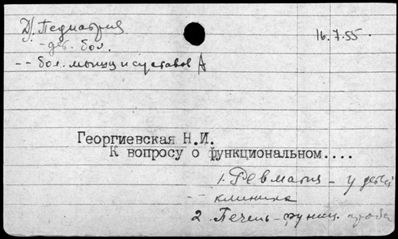 Д) Педиатрия
16.7.55.
- дет. бол.
-- бол. мышц и суставов А
Георгиевская Н.И.
К вопросу о функциональном....
1. Ревматизм - у детей
- клиника
2. Печень - функц. проба